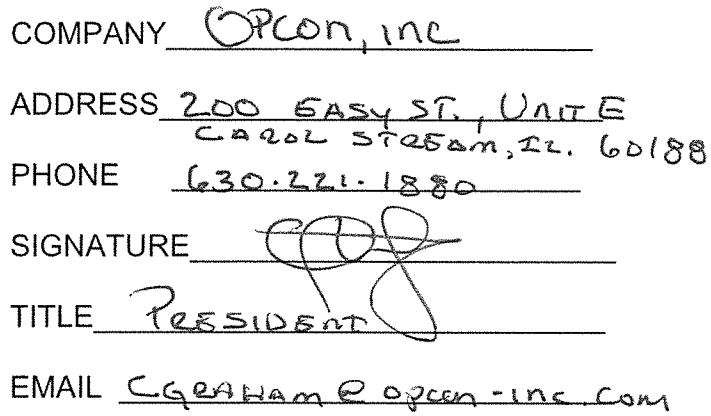 COMPANY OPCON, INC
ADDRESS 200 EASY ST., UNIT E
CAROL STREAM, IL. 60188
PHONE 630.221.1880
SIGNATURE
TITLE PRESIDENT
EMAIL CGRAHAM@OPCON-INC.COM